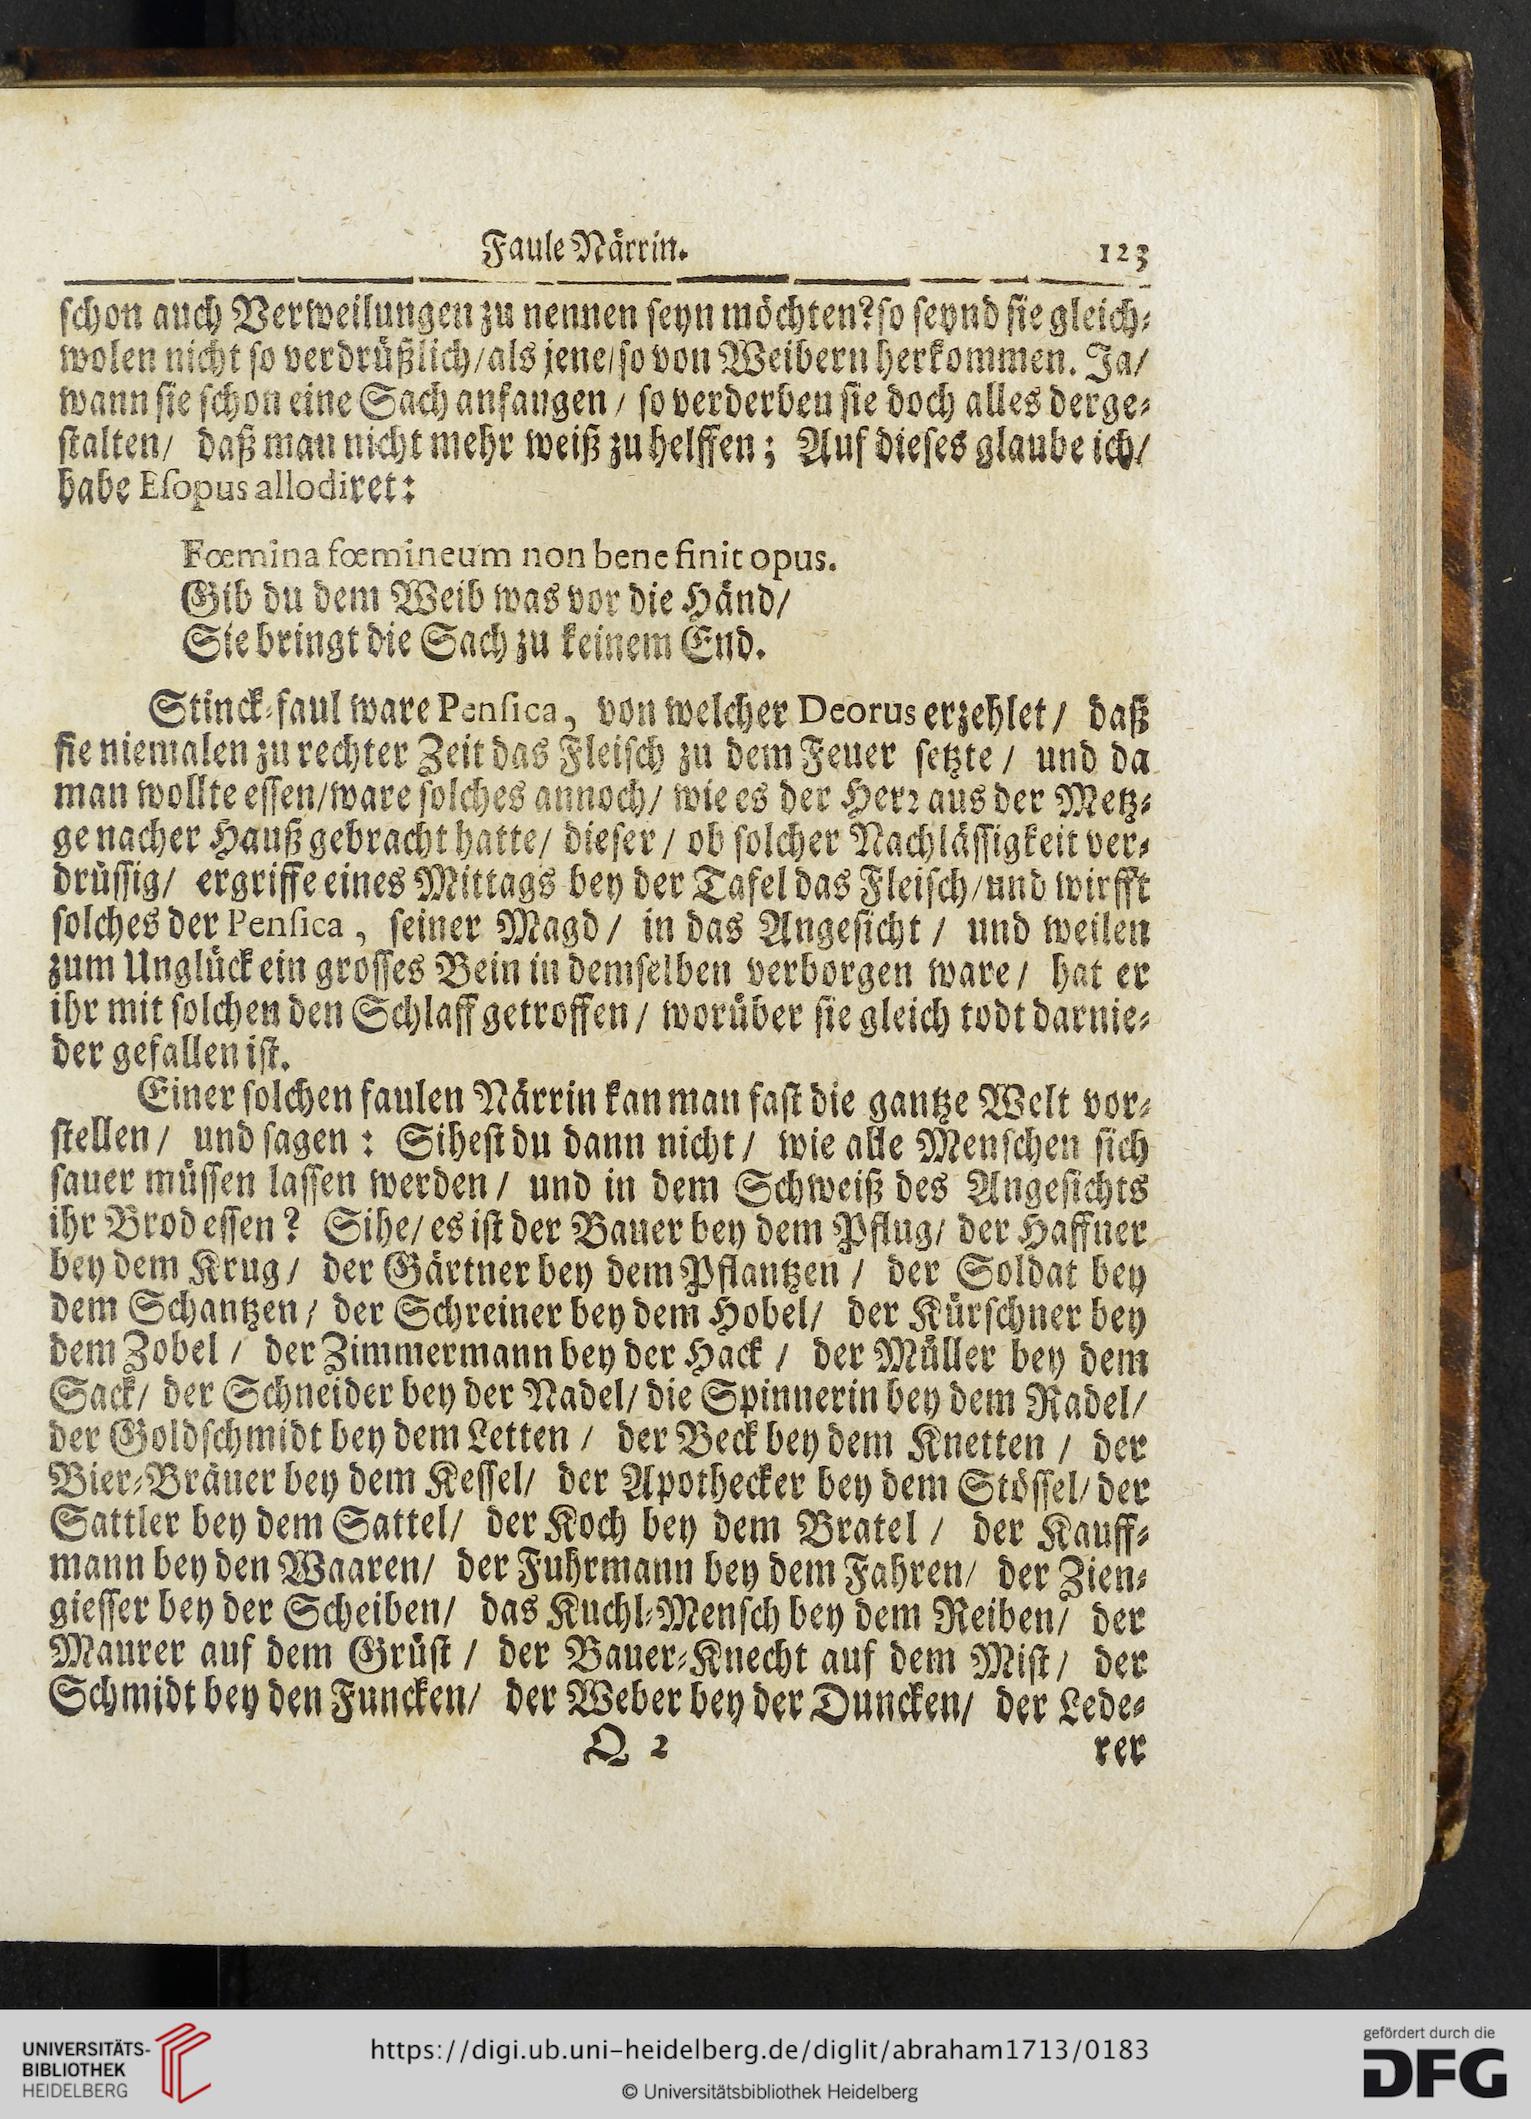 Faule Närrin. 123
schon auch Verweilungen zu nennen seyn möchten? so seynd sie gleich-
wolen nicht so verdrüßlich/ als jene/ so von Weibern herkommen. Ja/
wann sie schon eine Sach anfangen/ so verderben sie doch alles derge-
stalten/ daß man nicht mehr weiß zu helffen; Auf dieses glaube ich/
habe Esopus allodiret:
Fœmina fœmineum non bene finit opus.
Gib du dem Weib was vor die Händ/
Sie bringt die Sach zu keinem End.
Stinck-faul ware Pensica, von welcher Deorus erzehlet/ daß
sie niemalen zu rechter Zeit das Fleisch zu dem Feuer setzte/ und da
man wollte essen/ ware solches annoch/ wie es der Herr aus der Metz-
ge nacher Hauß gebracht hatte/ dieser/ ob solcher Nachlässigkeit ver-
drüssig/ ergriffe eines Mittags bey der Tafel das Fleisch/ und wirfft
solches der Pensica, seiner Magd/ in das Angesicht/ und weilen
zum Unglück ein grosses Bein in demselben verborgen ware/ hat er
ihr mit solchen den Schlaff getroffen/ worüber sie gleich todt darnie-
der gefallen ist.
Einer solchen faulen Närrin kan man fast die gantze Welt vor-
stellen/ und sagen: Sihest du dann nicht/ wie alle Menschen sich
sauer müssen lassen werden/ und in dem Schweiß des Angesichts
ihr Brod essen? Sihe/ es ist der Bauer bey dem Pflug/ der Haffner
bey dem Krug/ der Gärtner bey dem Pflantzen/ der Soldat bey
dem Schantzen/ der Schreiner bey dem Hobel/ der Kürschner bey
dem Zobel/ der Zimmermann bey der Hack/ der Müller bey dem
Sack/ der Schneider bey der Nadel/ die Spinnerin bey dem Radel/
der Goldschmidt bey dem Letten/ der Beck bey dem Knetten/ der
Bier-Bräuer bey dem Kessel/ der Apothecker bey dem Stössel/ der
Sattler bey dem Sattel/ der Koch bey dem Bratel/ der Kauff-
mann bey den Waaren/ der Fuhrmann bey dem Fahren/ der Zien-
giesser bey der Scheiben/ das Kuchl-Mensch bey dem Reiben/ der
Maurer auf dem Grüst/ der Bauer-Knecht auf dem Mist/ der
Schmidt bey den Funcken/ der Weber bey der Duncken/ der Lede-
Q 2 rer
UNIVERSITÄTS-
BIBLIOTHEK
HEIDELBERG
https://digi.ub.uni-heidelberg.de/diglit/abraham1713/0183
© Universitätsbibliothek Heidelberg
gefördert durch die
DFG